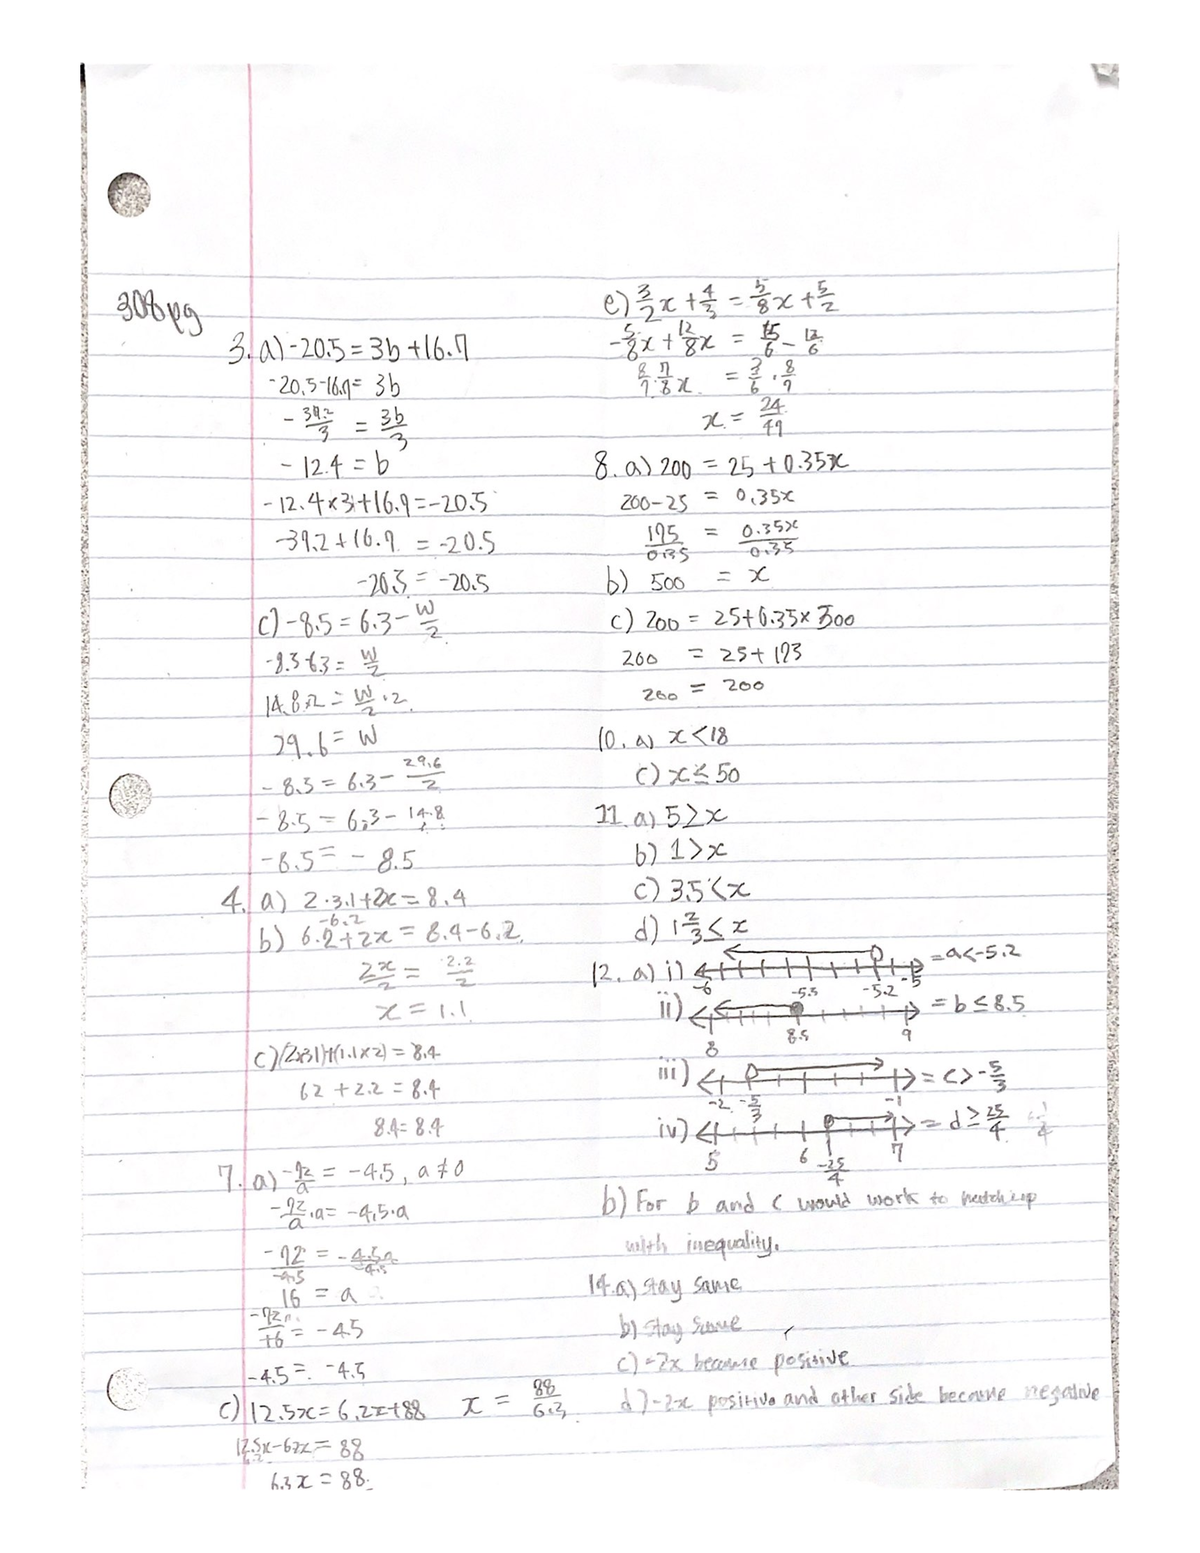 308pg
3. a) -20.5 = 3b + 16.7
-20.5-16.7 = 3b
- 37.2/3 = 3b/3
- 12.4 = b
- 12.4 x 3 + 16.7 = -20.5
-37.2 + 16.7 = -20.5
-20.5 = -20.5
c) -8.5 = 6.3 - w/2
-8.5-6.3 = w/2
14.8·2 = w/2 · 2
29.6 = w
- 8.5 = 6.3 - 29.6/2
- 8.5 = 6.3 - 14.8
-8.5 = - 8.5
4. a) 2·3.1+2x = 8.4
-6.2
b) 6.2+2x = 8.4-6.2
2x/2 = 2.2/2
x = 1.1
c) (2x3.1)+(1.1x2) = 8.4
6.2 + 2.2 = 8.4
8.4 = 8.4
7. a) -72/a = -4.5, a ≠ 0
-72/a · a = -4.5·a
-72/-4.5 = -4.5a/-4.5
16 = a
= -4.5
-4.5 = -4.5
c) 12.5x = 6.2x+88
12.5x-6.2x = 88
6.3x = 88
x = 88/6.3
e) 3/2 x + 4/3 = 5/8 x + 5/2
-5/8 x + 12/8 x = 15/6 -
8/7 · 7/8 x = 7/6 · 8/7
x = 24/49
8. a) 200 = 25 + 0.35x
200-25 = 0.35x
175/0.35 = 0.35x/0.35
b) 500 = x
c) 200 = 25+0.35x 500
200 = 25+ 175
200 = 200
10. a) x < 18
c) x ≤ 50
11. a) 5 ≥ x
b) 1 > x
c) 3.5 < x
d) 1 2/3 ≤ x
12. a) i) = a<-5.2
-6 -5.5 -5.2 -5
ii) = b ≤ 8.5
8 8.5 9
iii) = c > -5/3
-2 -5/3 -1
iv) = d ≥ 25/4
5 6 -25/4 7
b) For b and c would work to
with inequality.
14. a) stay same
b) stay same
c) -2x became positive
d) -2x positive and other side become negative